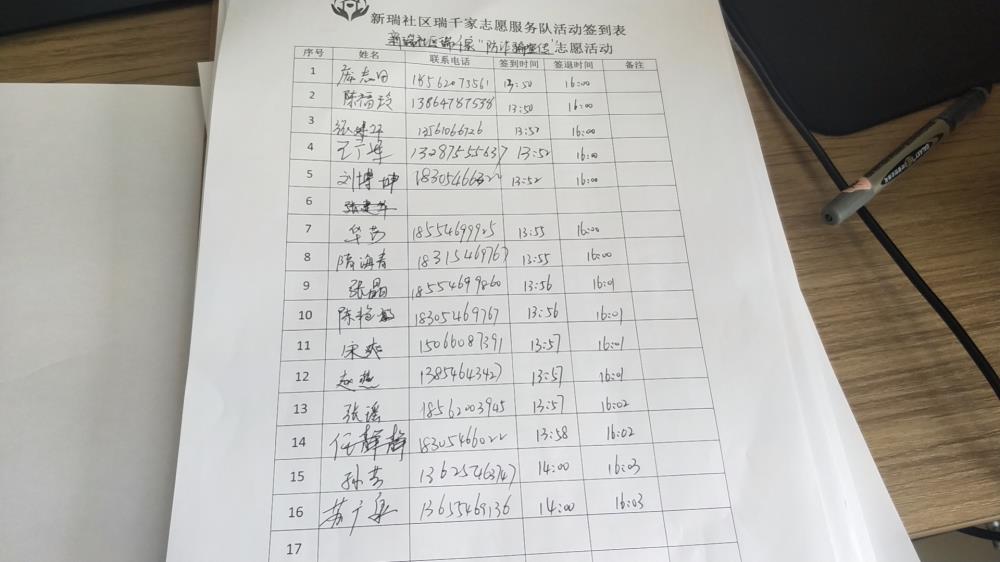 新瑞社区瑞千家志愿服务队活动签到表
新瑞社区瑞千家“防诈骗宣传”志愿活动
序号 姓名 联系电话 签到时间 签退时间 备注
1 18562073561 13:50 16:00
2 陈福玲 13864787538 13:50 16:00
3 13561066726 13:52 16:00
4 13287555637 13:52 16:00
5 刘博坤 18305466322 13:52 16:00
6
7 华芳 18554699925 13:55 16:00
8 隋海青 18315469767 13:55 16:00
9 张晶 18554699860 13:56 16:01
10 18305469767 13:56 16:01
11 宋爽 15066087391 13:57 16:01
12 赵燕 13854643427 13:57 16:01
13 张谣 18562003945 13:57 16:02
14 任静静 18305466022 13:58 16:02
15 孙芳 13625463747 14:00 16:03
16 苏广泉 13655469136 14:00 16:03
17